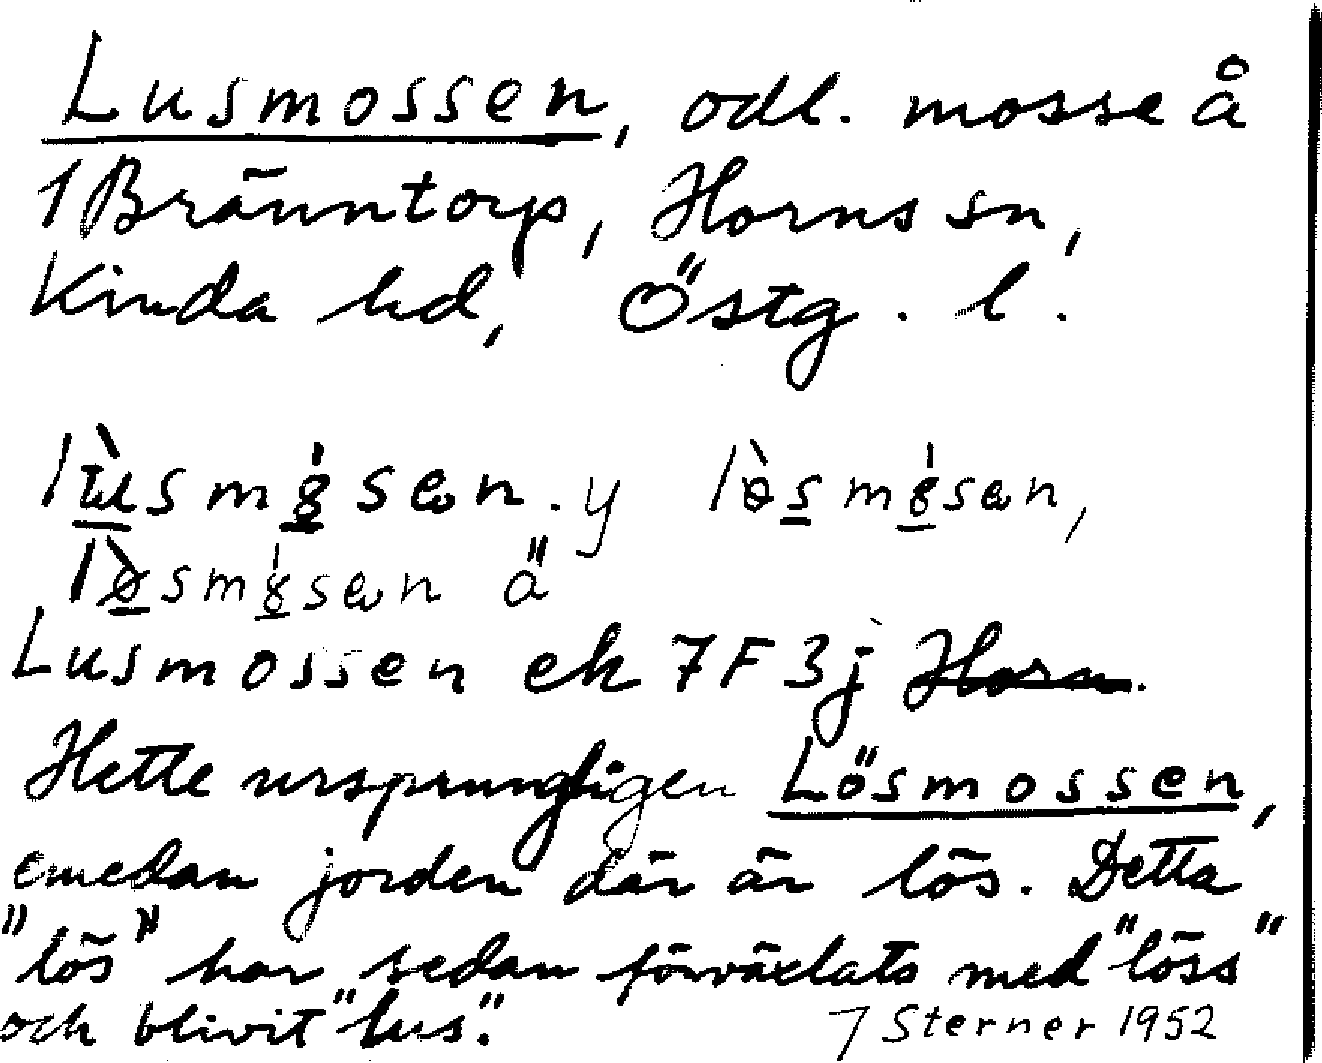 Lusmossen, odl. mosse å
1 Bränntorp, Horns sn,
Kinda hd, Östg. l.
y
ä
Lusmossen ek 7F3j Horn.
Hette ursprungligen Lösmossen,
emedan jorden där är lös. Detta
"lös" har sedan förväxlats med "löss"
och blivit "lus".
J Sterner 1952